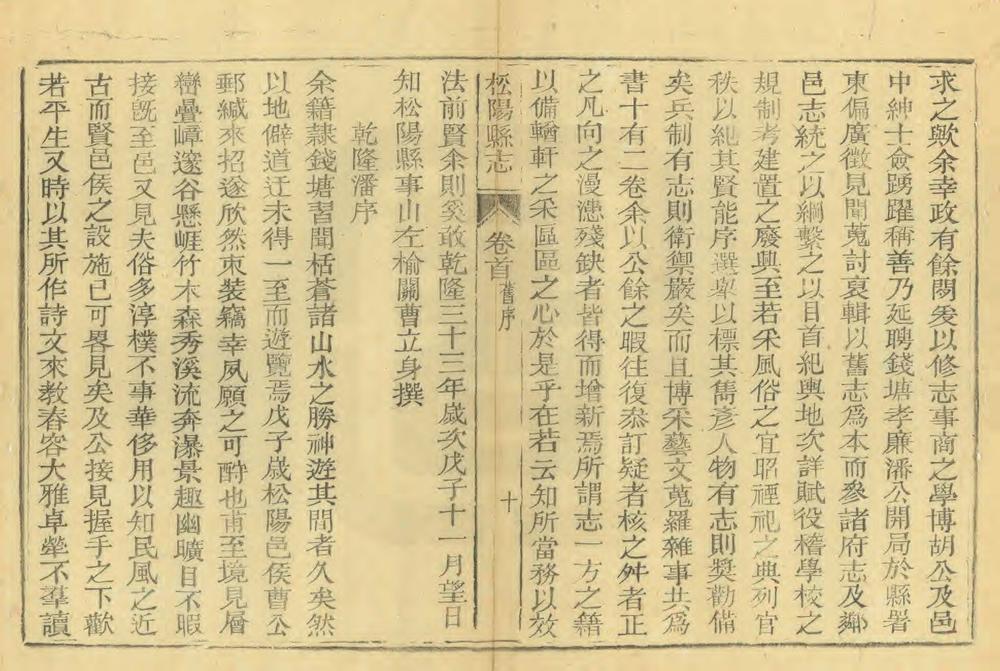 求之歟余幸政有餘閒爰以修志事商之學博胡公及邑
中紳士僉踴躍稱善乃延聘錢塘孝廉潘公開局於縣署
東偏廣徵見聞蒐討裒輯以舊志為本而參諸府志及鄰
邑志統之以綱繫之以目首紀輿地次詳賦役稽學校之
規制考建置之廢興至若采風俗之宜昭禋祀之典列官
秩以紀其賢能序選舉以標其雋彥人物有志則獎勸備
矣兵制有志則衛禦嚴矣而且博采藝文蒐羅雜事共為
書十有二卷余以公餘之暇往復叅訂疑者核之舛者正
之凡向之漫漶殘缺者皆得而增新焉所謂志一方之籍
以備輶軒之采區區之心於是乎在若云知所當務以效
松陽縣志 卷首 舊序 十
法前賢余則奚敢乾隆三十三年歲次戊子十一月望日
知松陽縣事山左榆關曹立身撰
乾隆潘序
余籍隸錢塘習聞栝蒼諸山水之勝神遊其間者久矣然
以地僻道迂未得一至而遊覽焉戊子歲松陽邑侯曹公
郵緘來招遂欣然束裝竊幸夙願之可酧也甫至境見層
巒疊嶂邃谷懸崕竹木森秀溪流奔瀑景趣幽曠目不暇
接旣至邑又見夫俗多淳樸不事華侈用以知民風之近
古而賢邑侯之設施已可畧見矣及公接見握手之下歡
若平生又時以其所作詩文來教舂容大雅卓犖不羣讀